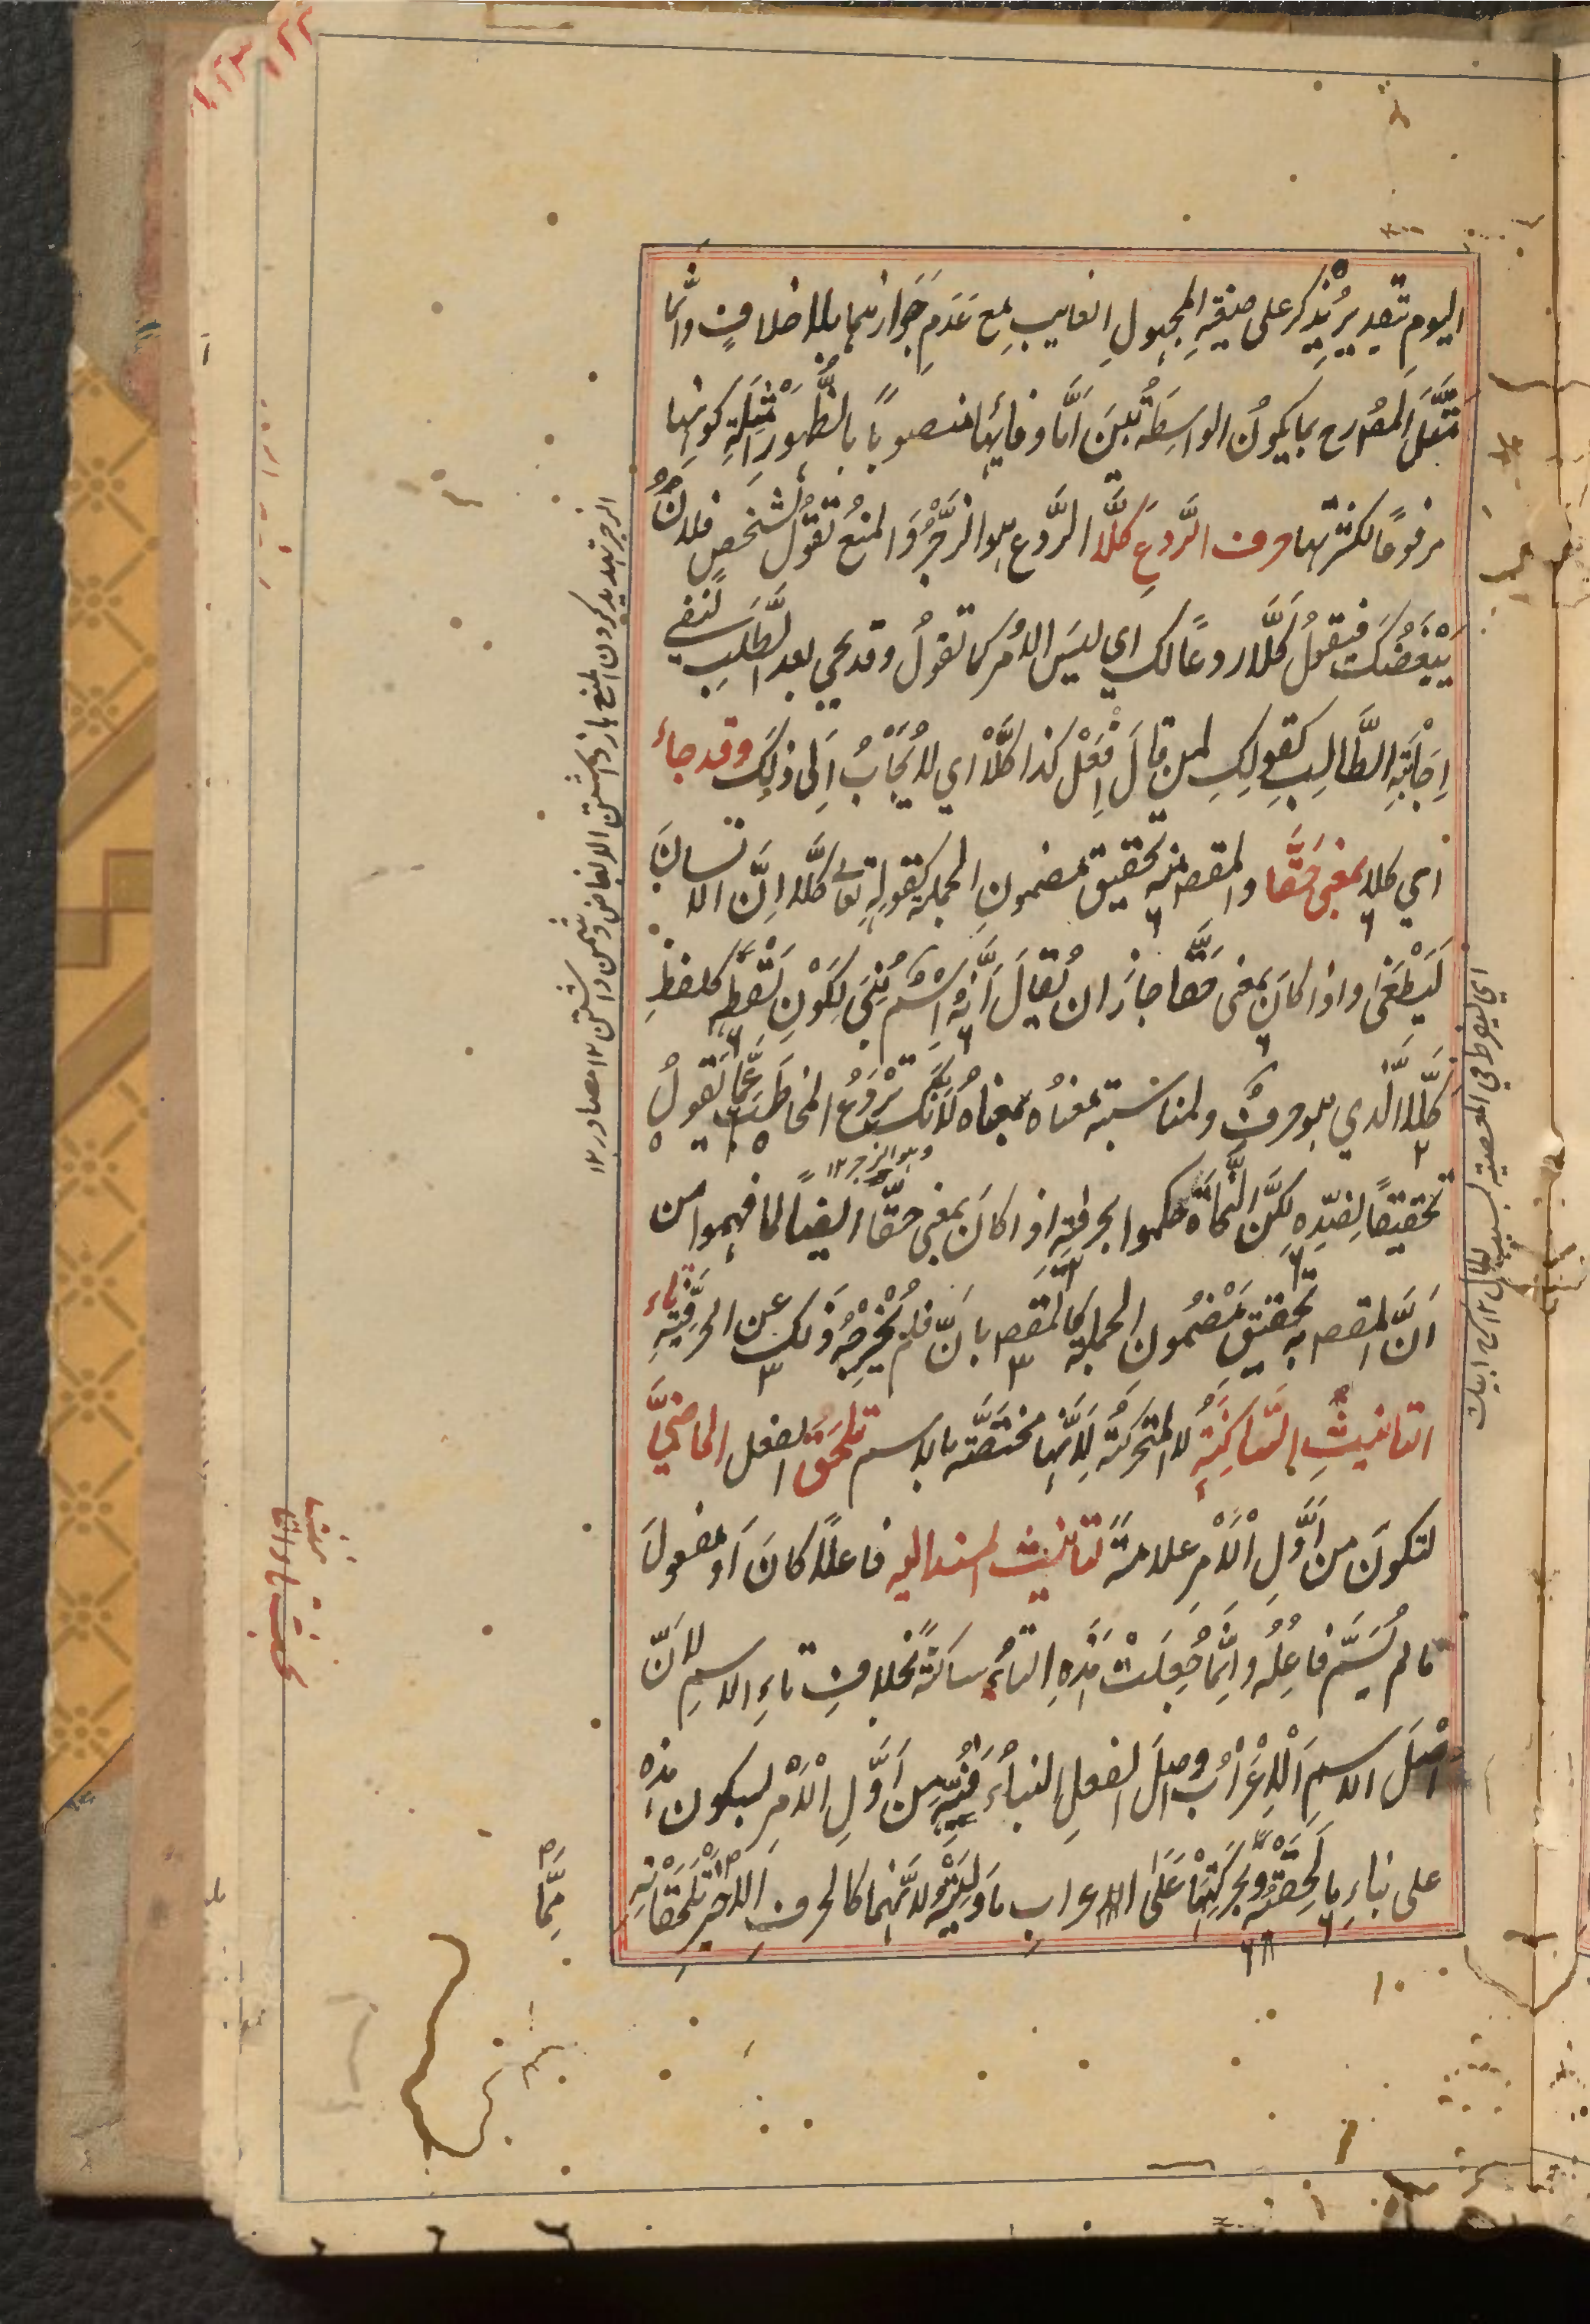 اليومِ تقديرُ يُذكر على صيغةِ المجهولِ الغايبِ مع عَدَمِ جَوازهما بلا خلافٍ وانّما
مَثَّلَ المصرح بما يكونُ الواسِطةُ بينَ أمَّا وفائِها منصوبًا بالظُهورِ أمْثِلَةِ كونِها
مرفوعًا لكثرتها حرف الرَّدعِ كَلَّا الرَّدع هو الزَّجرُ والمنعُ تقولُ لشخصٍ فلانٌ
يُبْغِضُكَ فيقولُ كَلّا ردعًا لك اي ليسَ الأمرُ كما تقولُ وقد يجي بعد الطَّلبِ لنفي
إجابَةِ الطَّالبِ كقولِكَ لمن قالَ اِفعَلْ كذا كَلَّا اي لا يُجابُ إلى ذلِكَ وقد جاء
اي كلا بمعنى حَقًّا والمقص منه تحقيق مضمونِ الجملة كقولِه تعالى كَلَّا إنَّ الانسانَ
لَيَطْغَى واذا كانَ بمعنى حَقًّا جازَ ان يُقالَ أنَّهُ اسمٌ بُنِيَ لِكَوْنِ لَفْظِهِ كلفظِ
كَلَّا الّذي هو حرفٌ ولمناسبته معناه بمعناهُ لأنّك تَرْدَعُ المخاطَبَ عمَّا يَقولُ
وهو الزجر ١٢
تحقيقًا لِضِدِّهِ لكِنَّ النُّحاةَ حكموا بحرفيَّتِه اذا كانَ بمعنى حقًّا ايضًا لما فهموا من
اَنَّ المقص به تحقيقُ مَضْمُونِ الجملةِ كالمقصِ بانَّ فلم يُخْرِجْهُ ذلك عن الحرفيَّةِ تاء
التانيثِ السَّاكِنَةِ لا المتحركةُ لِأنَّها مختصَّةٌ بالاسم تَلحَقُ الفعل الماضيَ
لتكونَ من أوَّلِ الأمْرِ علامةً لتانيث المسند اليه فاعلًا كانَ أو مفعولَ
ما لم يُسَمَّ فاعِلُه وانَّما جُعِلَتْ هٰذِهِ التاءُ ساكنةً بخلافِ تاءِ الاسمِ لأنَّ
أصلَ الاسمِ الإعْرَابُ واصلَ الفعلِ البناءُ فَنُبِّهَ من أوَّلِ الأمْرِ لسكون هذه
على بناءِ ما لَحِقَتْهُ وبِحَرَكَتِهَا عَلَى الاعرابِ ما وَلِيَتْهُ لأنَّهما كالحرفِ الأخيرِ تلحقانه
مِمَّا
الزجر تهديد كردن المنع باز داشتن الابغاض دشمن داشتن ١٢ مصادر ١٢